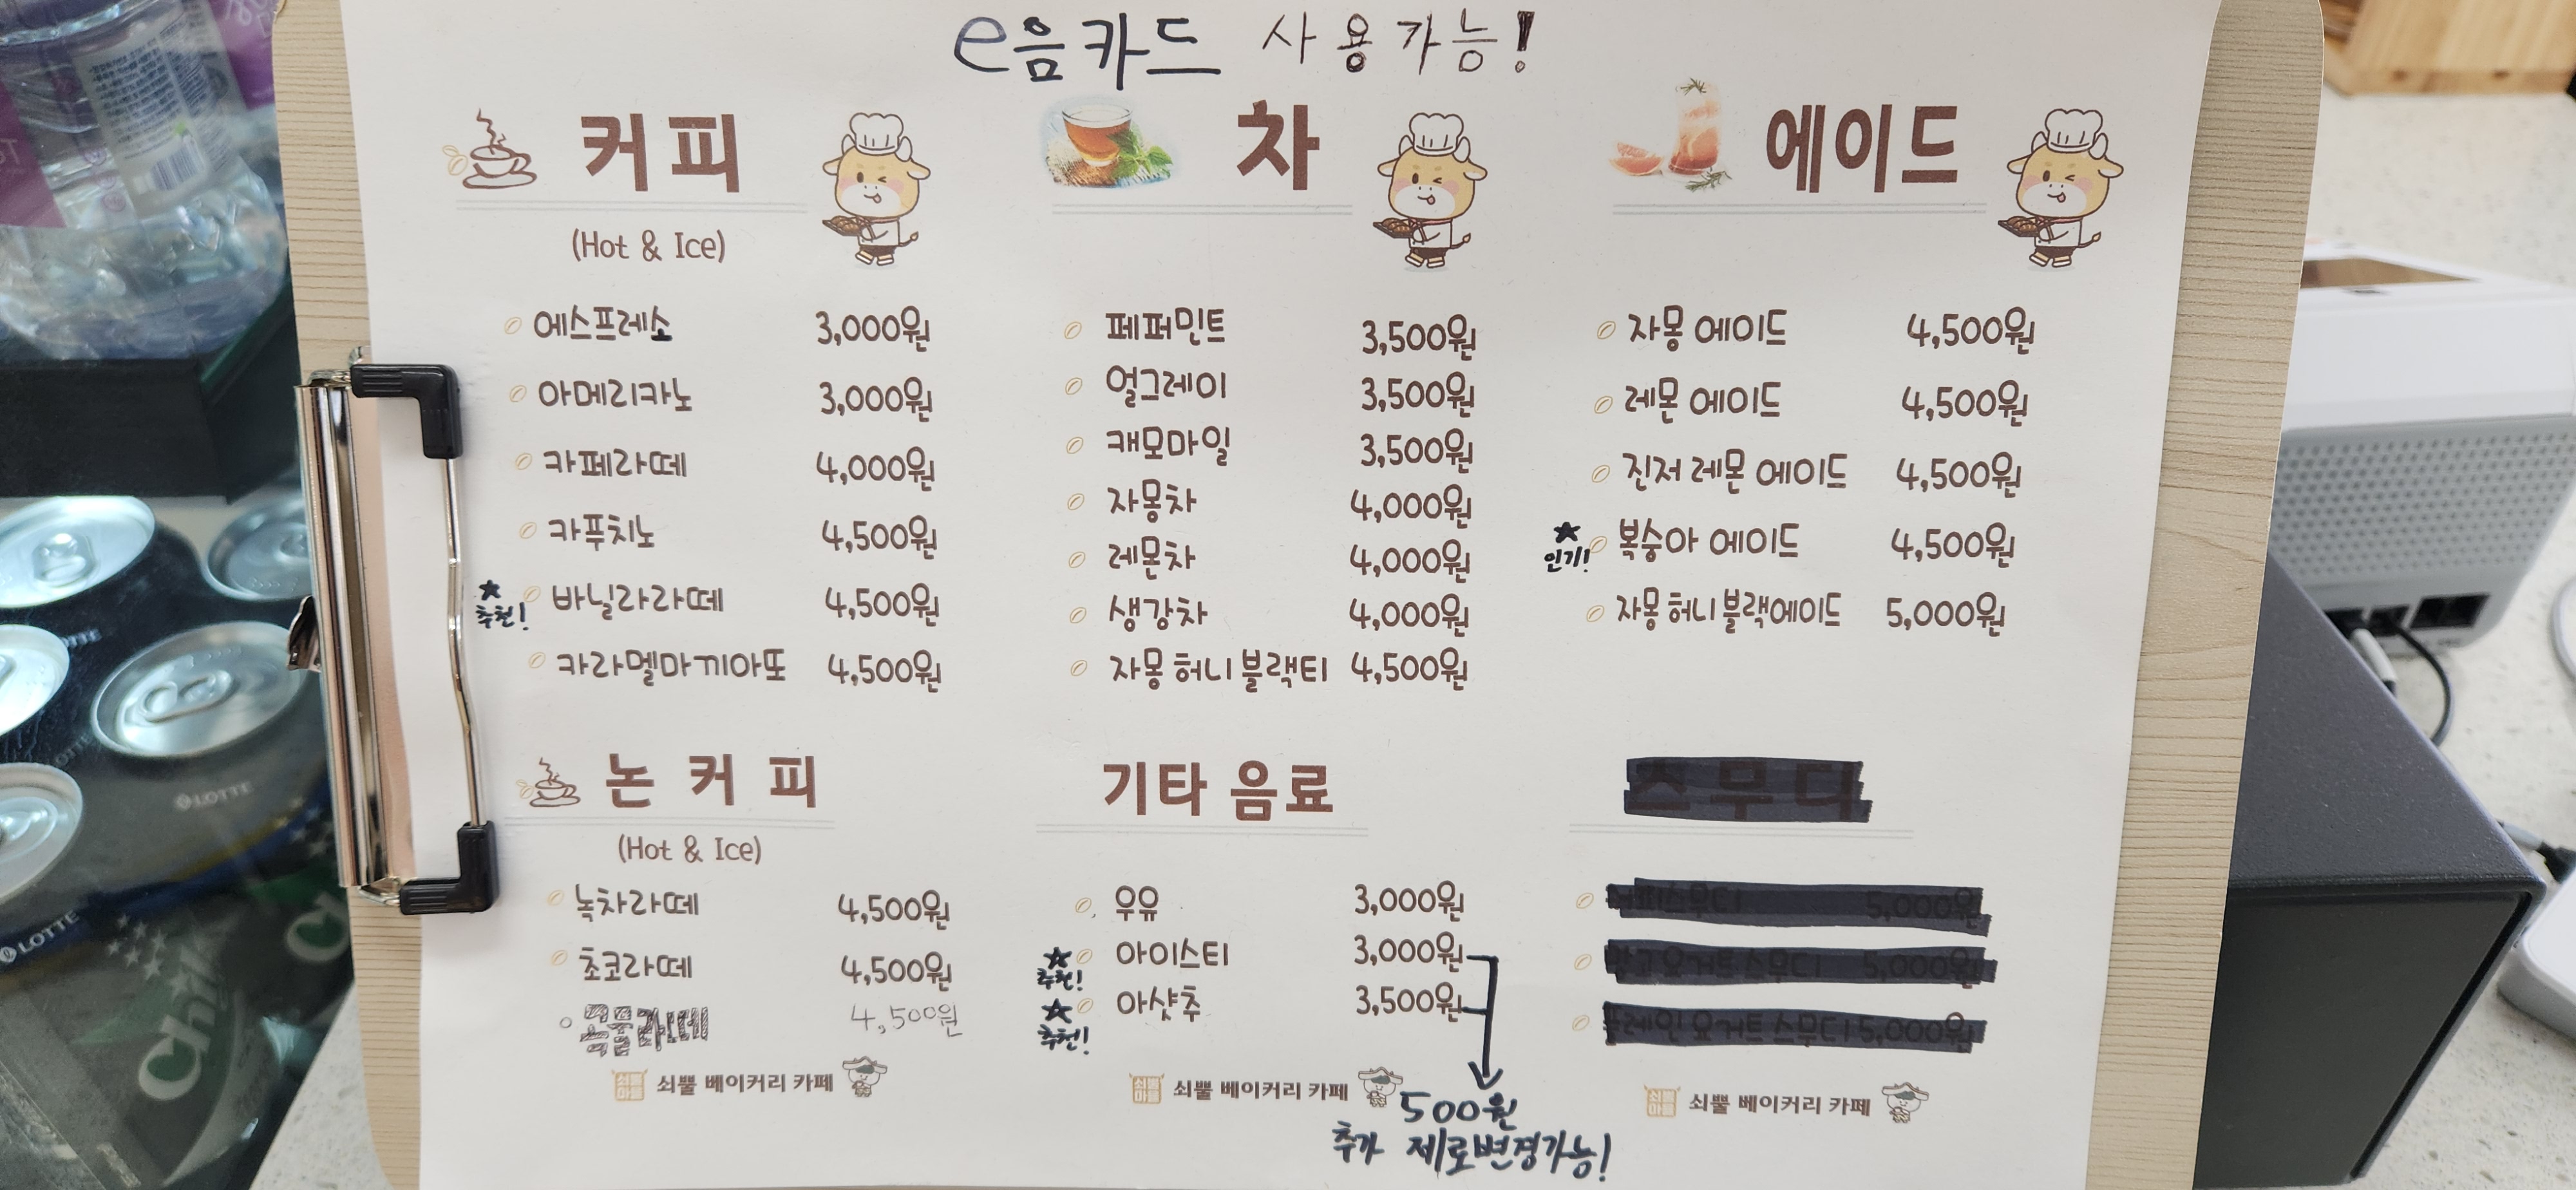 e음카드 사용가능!
커피
(Hot & Ice)
에스프레소 3,000원
아메리카노 3,000원
카페라떼 4,000원
카푸치노 4,500원
★ 추천! 바닐라라떼 4,500원
카라멜마끼아또 4,500원
차
페퍼민트 3,500원
얼그레이 3,500원
캐모마일 3,500원
자몽차 4,000원
레몬차 4,000원
생강차 4,000원
자몽 허니 블랙티 4,500원
에이드
자몽 에이드 4,500원
레몬 에이드 4,500원
진저 레몬 에이드 4,500원
★ 인기! 복숭아 에이드 4,500원
자몽 허니 블랙에이드 5,000원
논 커피
(Hot & Ice)
녹차라떼 4,500원
초코라떼 4,500원
4,500원
쇠뿔 베이커리 카페
기타 음료
우유 3,000원
★ 추천! 아이스티 3,000원
★ 추천! 아샷추 3,500원
500원
추가 제로변경가능!
쇠뿔 베이커리 카페
스무디
커피스무디 5,000원
망고 요거트 스무디 5,000원
플레인 요거트 스무디 5,000원
쇠뿔 베이커리 카페
LOTTE
LOTTE
Chil